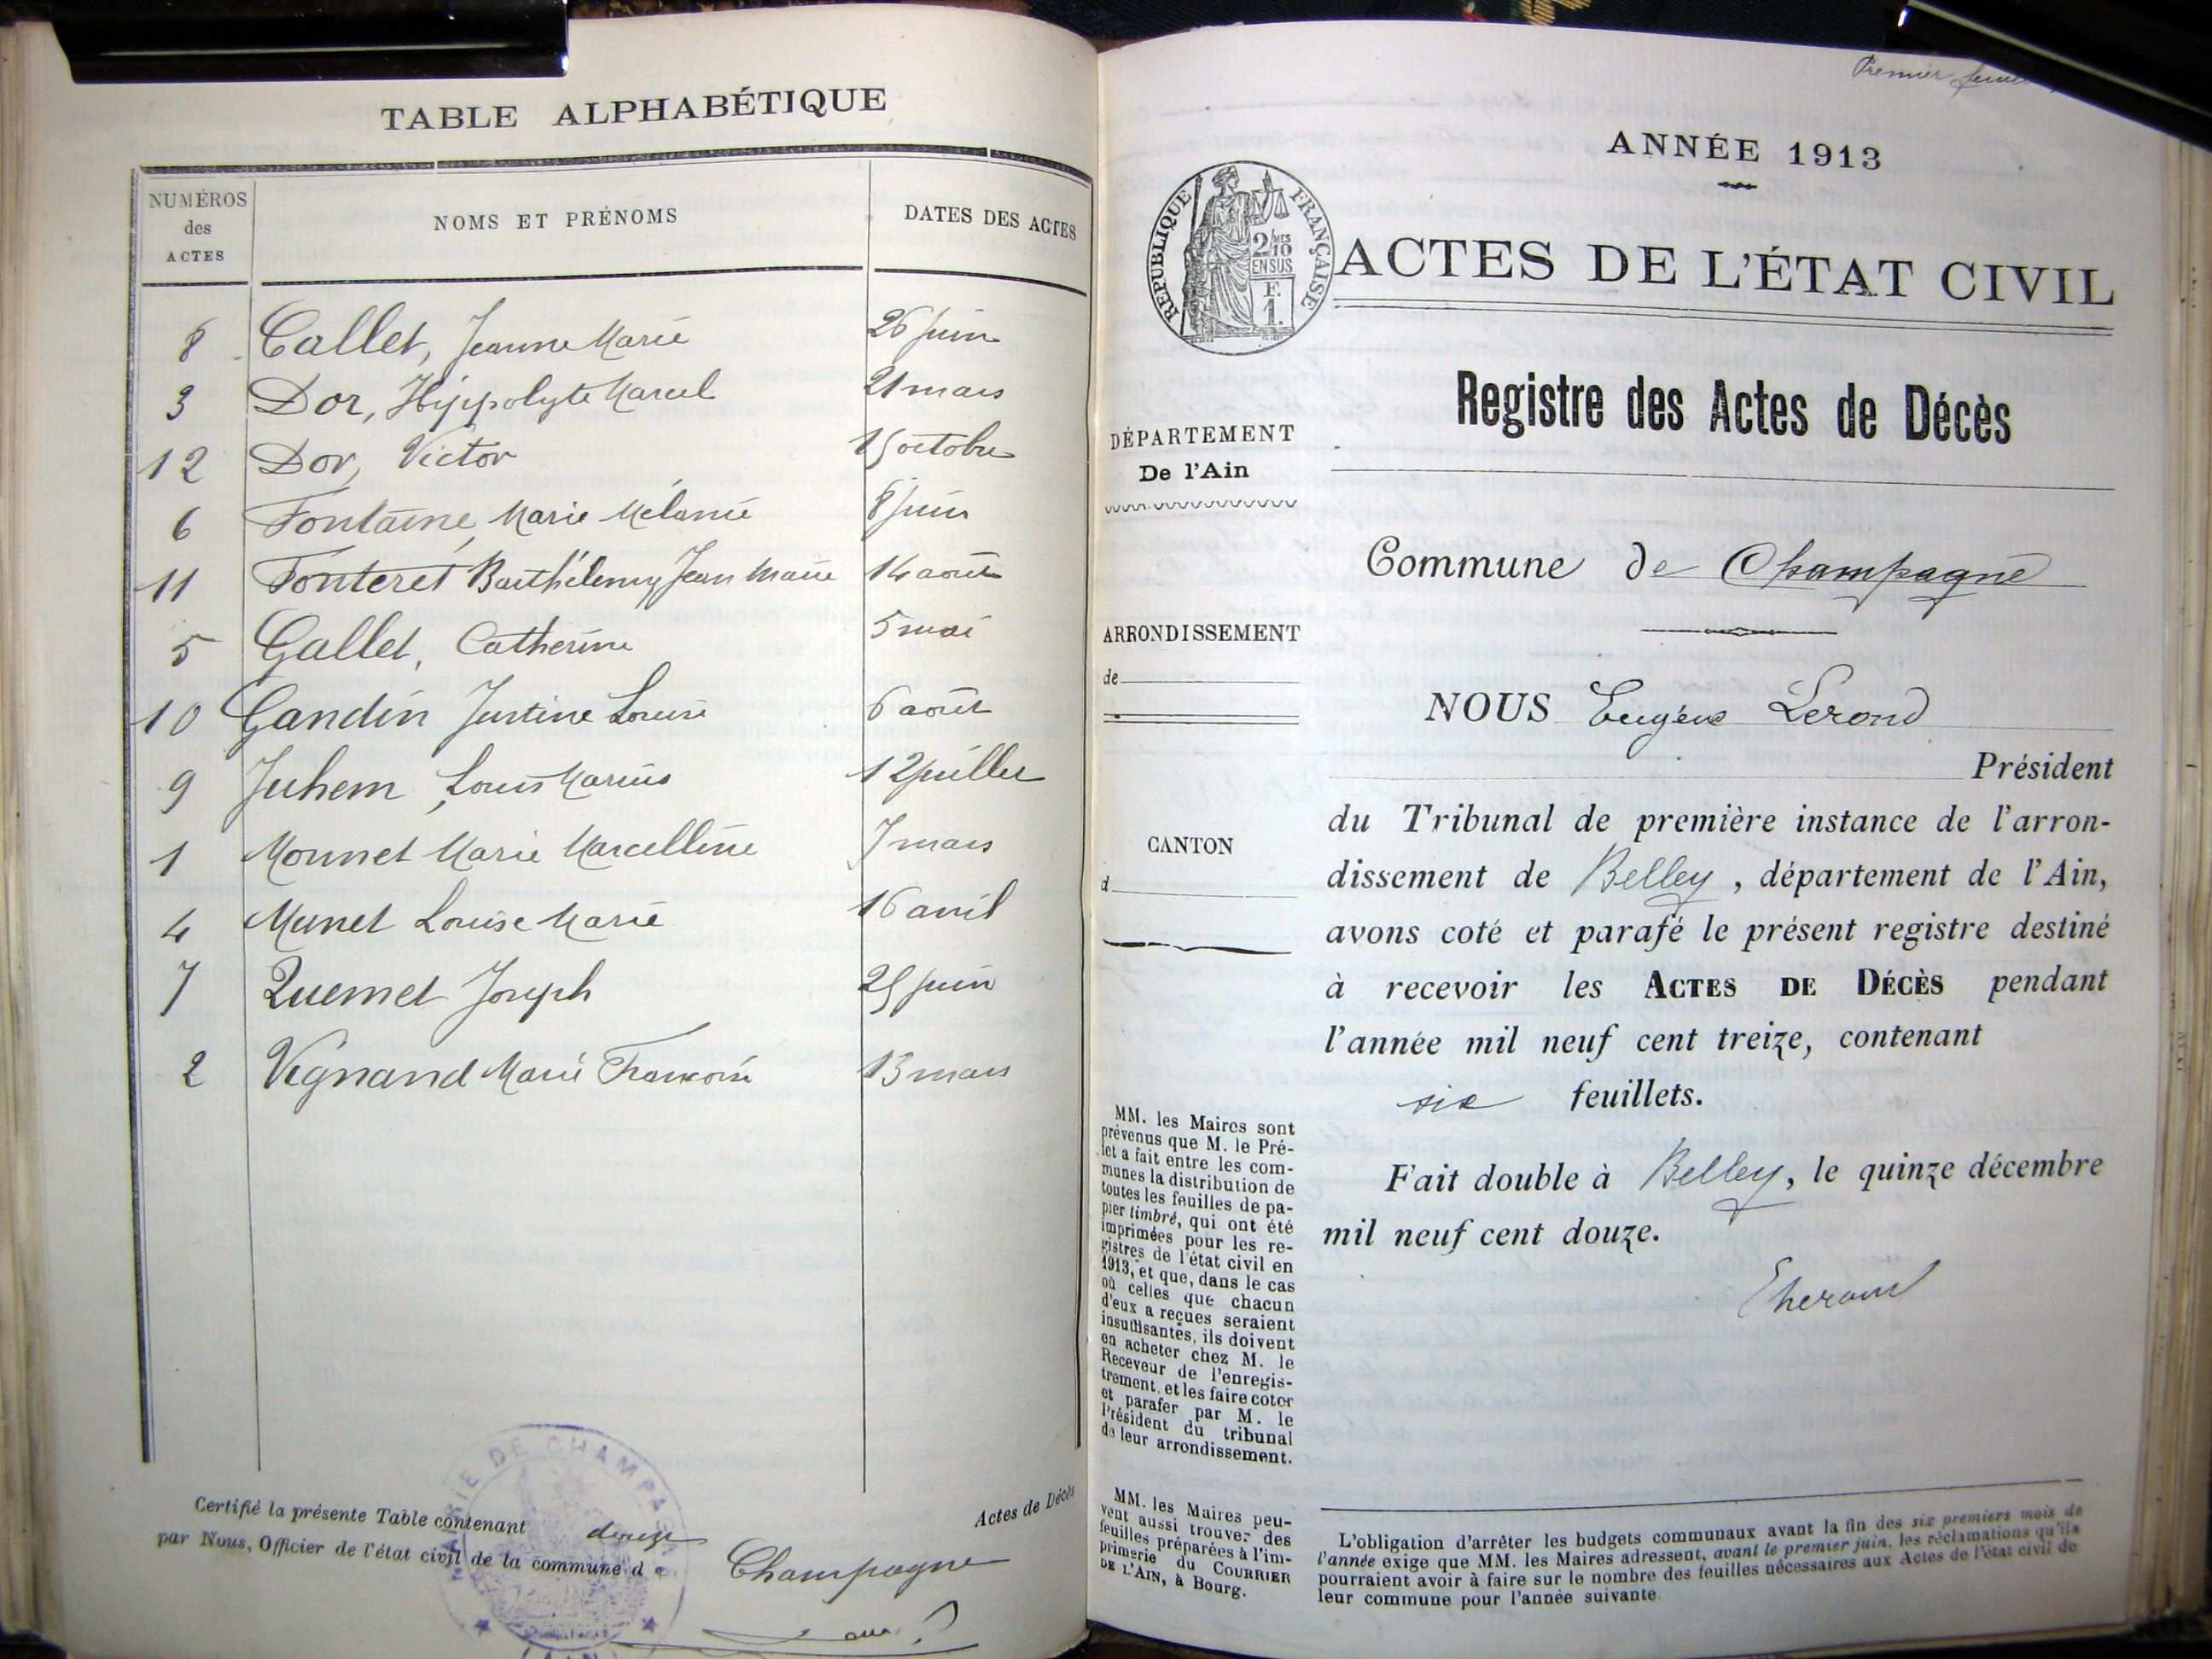 TABLE ALPHABÉTIQUE
NUMÉROS des ACTES
NOMS ET PRÉNOMS
DATES DES ACTES
8 Callet, Jeanne Marie 26 juin
3 Dor, Hippolyte Marcel 21 mars
12 Dor, Victor 15 octobre
6 Fontaine, Marie Mélanie 8 juin
11 Fonteret Barthélemy Jean Marie 14 août
5 Gallet, Catherine 5 mai
10 Gandin Justine Louise 6 août
9 Juhem, Louis Marius 12 juillet
1 Monnet Marie Marcelline 7 mars
4 Munet Louise Marie 16 avril
7 Quemet Joseph 25 juin
2 Vignand Marie 13 mars
Certifié la présente Table contenant douze Actes de Décès
par Nous, Officier de l'état civil de la commune de Champagne
MAIRIE DE CHAMPAGNE
(AIN)
Premier
ANNÉE 1913
RÉPUBLIQUE FRANÇAISE
2/10MES
EN SUS
F.
1.
ACTES DE L'ÉTAT CIVIL
Registre des Actes de Décès
DÉPARTEMENT
De l'Ain
Commune de Champagne
ARRONDISSEMENT
de
CANTON
d
NOUS Eugène Lerond
Président
du Tribunal de première instance de l'arron-
dissement de Belley, département de l'Ain,
avons coté et parafé le présent registre destiné
à recevoir les ACTES DE DÉCÈS pendant
l'année mil neuf cent treize, contenant
six feuillets.
Fait double à Belley, le quinze décembre
mil neuf cent douze.
MM. les Maires sont
prévenus que M. le Pré-
fet a fait entre les com-
munes la distribution de
toutes les feuilles de pa-
pier timbré, qui ont été
imprimées pour les re-
gistres de l'état civil en
1913, et que, dans le cas
où celles que chacun
d'eux a reçues seraient
insuffisantes, ils doivent
en acheter chez M. le
Receveur de l'enregis-
trement, et les faire coter
et parafer par M. le
Président du tribunal
de leur arrondissement.
MM. les Maires peu-
vent aussi trouver des
feuilles préparées à l'im-
primerie du COURRIER
DE L'AIN, à Bourg.
L'obligation d'arrêter les budgets communaux avant la fin des six premiers mois de
l'année exige que MM. les Maires adressent, avant le premier juin, les réclamations qu'ils
pourraient avoir à faire sur le nombre des feuilles nécessaires aux Actes de l'état civil de
leur commune pour l'année suivante.